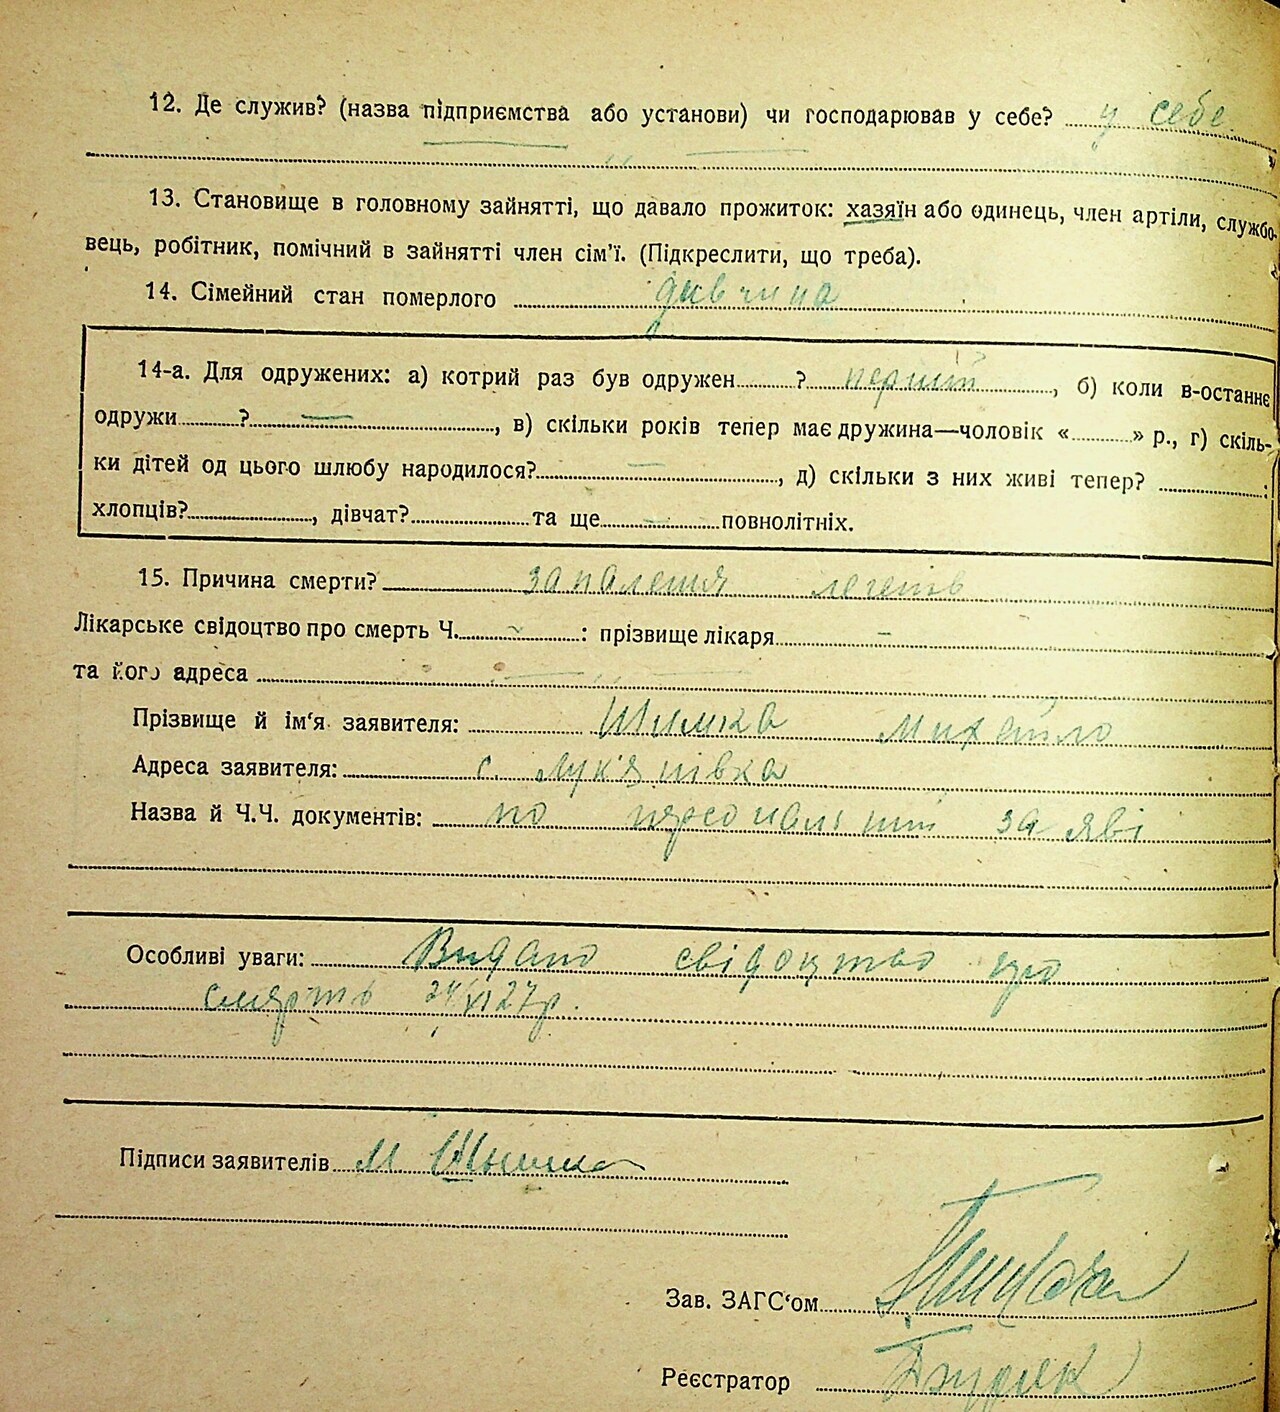 12. Де служив? (назва підприємства або установи) чи господарював у себе? у себе
13. Становище в головному зайнятті, що давало прожиток: хазяїн або одинець, член артіли, службо-
вець, робітник, помічний в зайнятті член сім'ї. (Підкреслити, що треба).
14. Сімейний стан померлого дивчина
14-а. Для одружених: а) котрий раз був одружен ? перший, б) коли в-останнє
одружи ? —, в) скільки років тепер має дружина—чоловік « » р., г) скіль-
ки дітей од цього шлюбу народилося? —, д) скільки з них живі тепер? :
хлопців? , дівчат? та ще — повнолітніх.
15. Причина смерти? запалення легенів
Лікарське свідоцтво про смерть Ч. - : прізвище лікаря -
та його адреса — „ —
Прізвище й ім'я заявителя: Шимка Михайло
Адреса заявителя: с. Лук'янівка
Назва й Ч.Ч. документів: по персональній заяві
Особливі уваги: Видано свідоцтво про
смерть 24/VI 27р.
Підписи заявителів М Шымка
Зав. ЗАГС'ом
Реєстратор